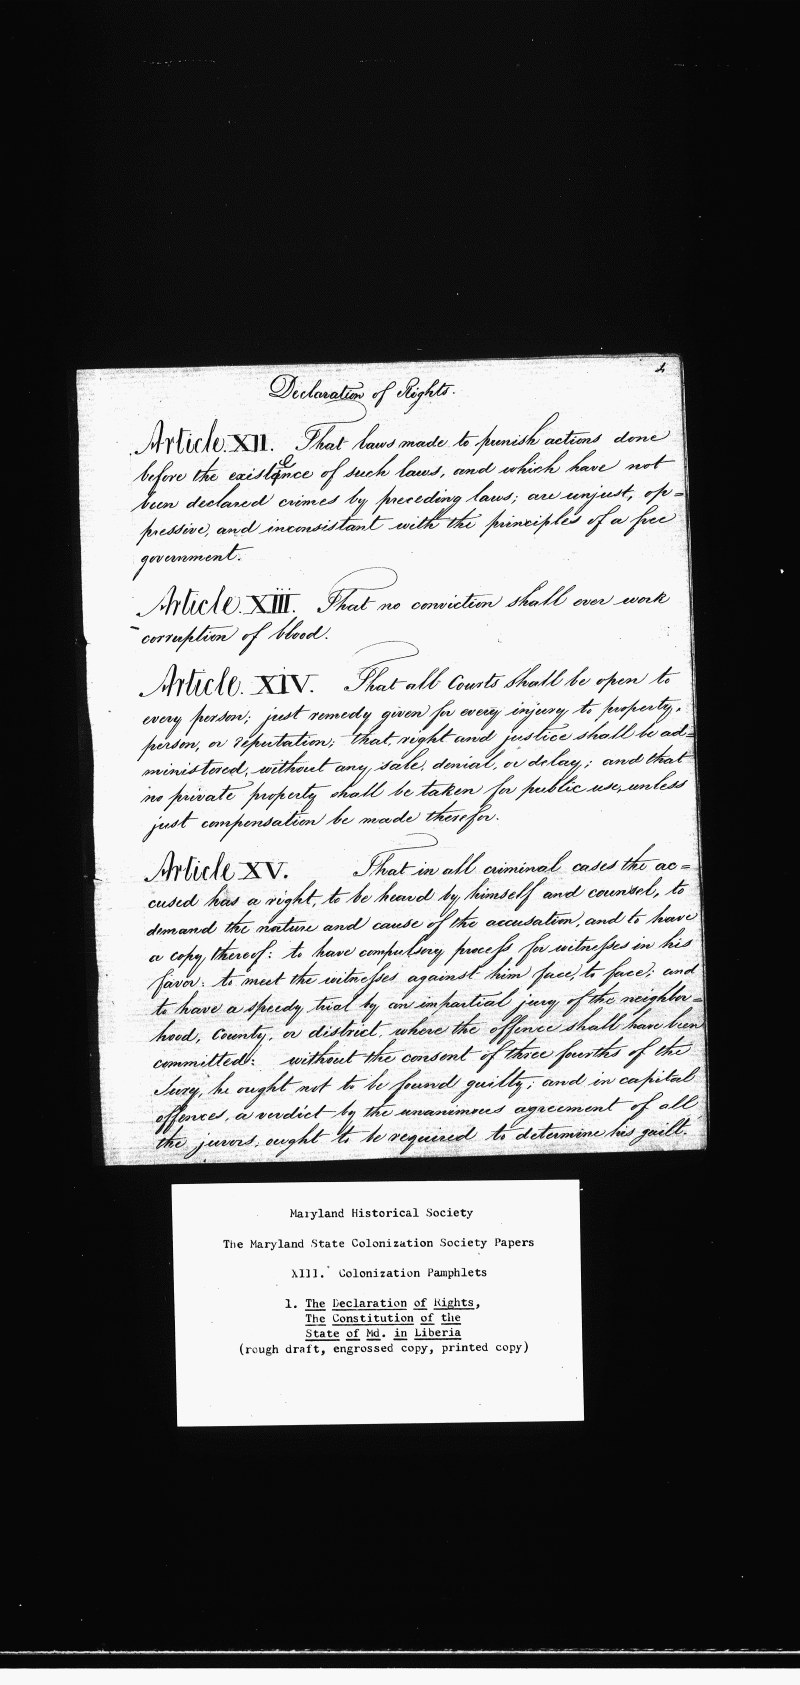 4
Declaration of Rights.
Article XII. That laws made to punish actions done
before the existence of such laws, and which have not
been declared crimes by preceding laws; are unjust, op=
pressive, and inconsistant with the principles of a free
government.
Article XIII. That no conviction shall ever work
corruption of blood.
Article. XIV. That all Courts shall be open to
every person; just remedy given for every injury to property,
person, or reputation; that, right and justice shall be ad=
ministered, without any sale, denial, or delay; and that
no private property shall be taken for public use, unless
just compensation be made therefor.
Article XV. That in all criminal cases the ac=
cused has a right, to be heard by himself and counsel, to
demand the nature and cause of the accusation, and to have
a copy thereof: to have compulsory process for witnesses in his
favor: to meet the witnesses against him face, to face; and
to have a speedy trial by an impartial jury of the neighbor=
hood, County, or district, where the offence shall have been
committed: without the consent of three fourths of the
Jury, he ought not to be found guilty; and in capital
offences, a verdict by the unanimous agreement of all
the jurors, ought to be required to determine his guilt.
Maryland Historical Society
The Maryland State Colonization Society Papers
XIII. Colonization Pamphlets
1. The Declaration of Rights,
The Constitution of the
State of Md. in Liberia
(rough draft, engrossed copy, printed copy)